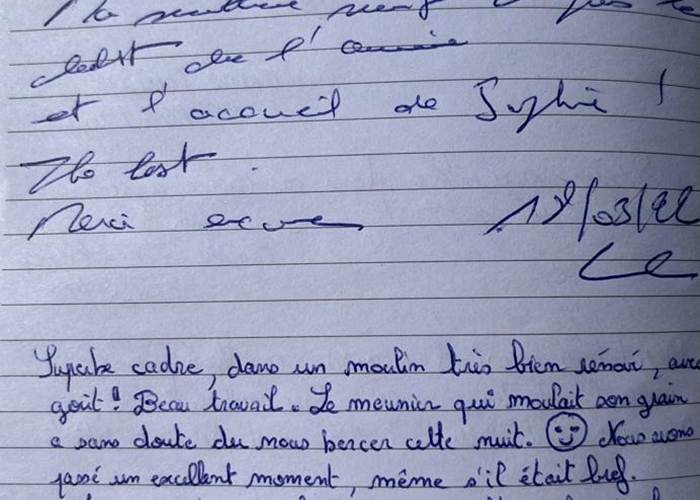 début de l'année
et l'accueil de Sophie !
The best.
Merci encore 19/03/22
Superbe cadre, dans un moulin très bien rénové, avec
goût ! Beau travail. Le meunier qui moulait son grain
a sans doute du nous bercer cette nuit. Nous avons
passé un excellent moment, même s'il était bref.